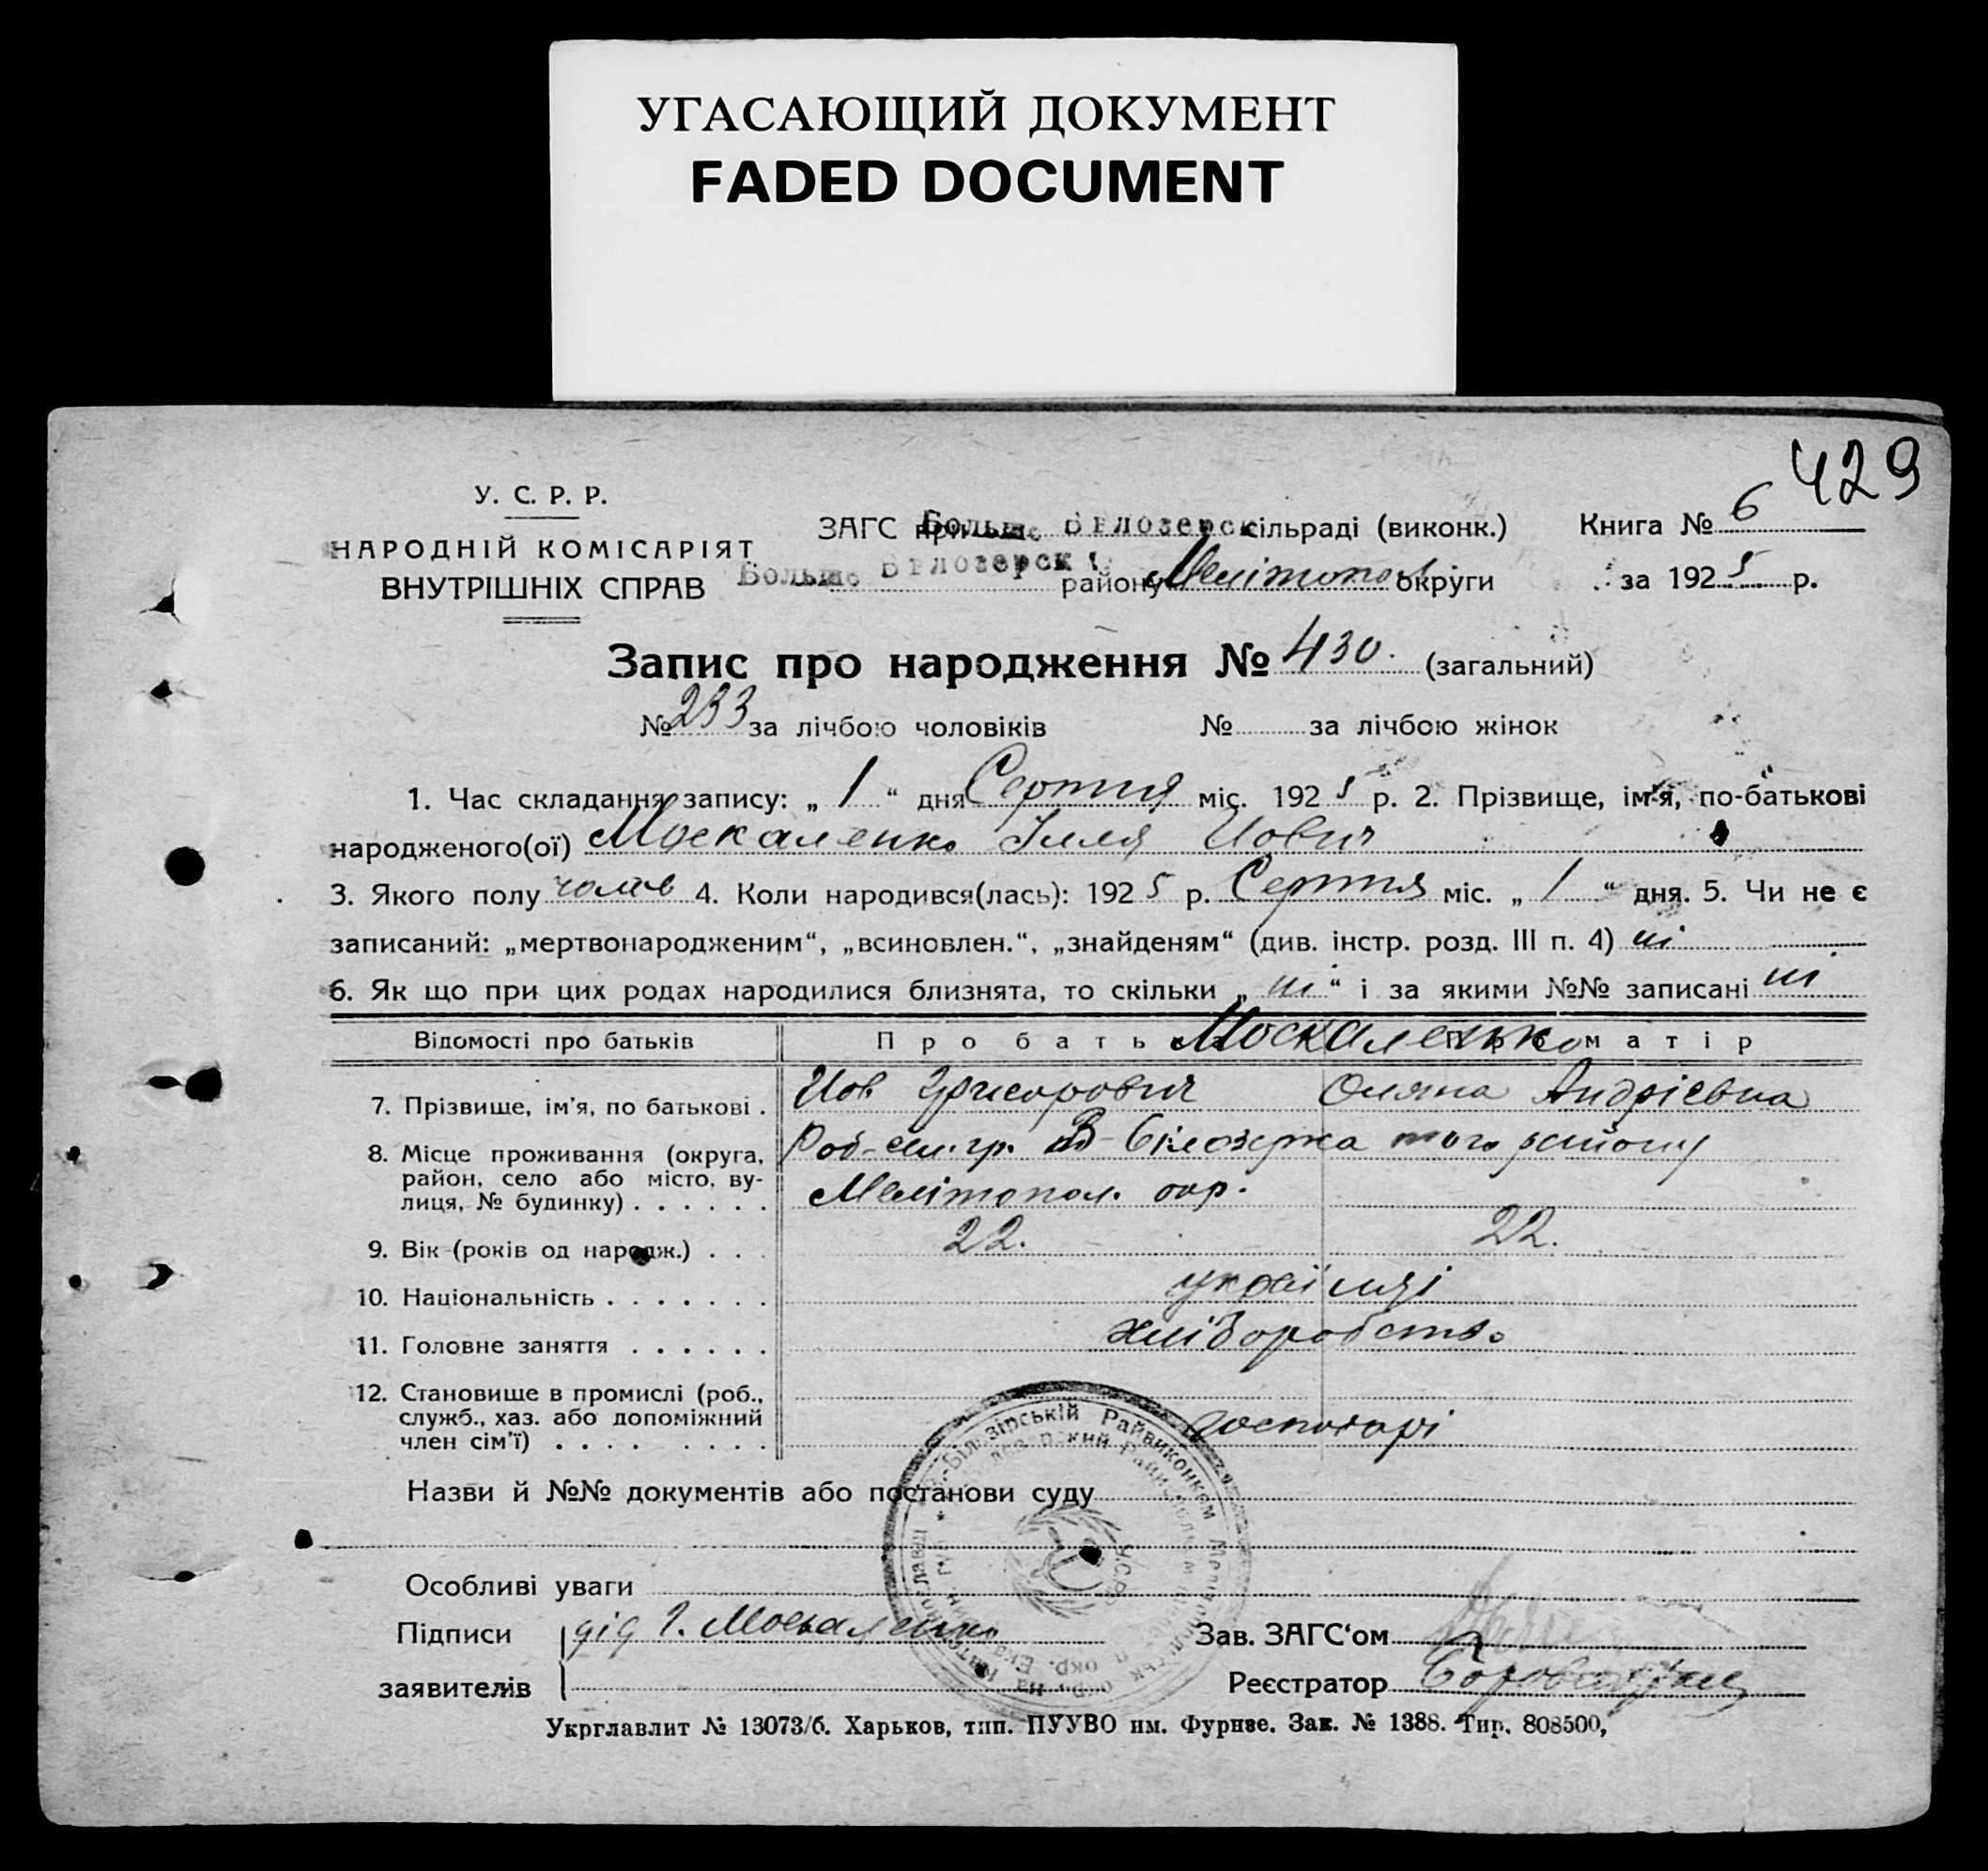 УГАСАЮЩИЙ ДОКУМЕНТ
FADED DOCUMENT
429
У. С. Р. Р.
НАРОДНІЙ КОМІСАРІЯТ
ВНУТРІШНІХ СПРАВ
ЗАГС при Больше Білозерск сільраді (виконк.) Книга № 6
Больше Білозерск району Мелітопол округи за 1925 р.
Запис про народження № 430. (загальний)
№ 233 за лічбою чоловіків № за лічбою жінок
1. Час складання запису: „ 1 “ дня Серпня міс. 1925 р. 2. Прізвище, ім'я, по-батькові
народженого(ої) Москаленко Ілля Иович
3. Якого полу чолов 4. Коли народився(лась): 1925 р. Серпня міс. „ 1 “ дня. 5. Чи не є
записаний: „мертвонародженим“, „всиновлен.“, „знайденям“ (див. інстр. розд. III п. 4) ні
6. Як що при цих родах народилися близнята, то скільки „ ні “ і за якими №№ записані ні
Відомості про батьків Про батька Москаленко Про матір
7. Прізвище, ім'я, по батькові . Иов Григорович Оляна Андріевна
8. Місце проживання (округа, район, село або місто, вулиця, № будинку) . . . . . . В-Білозерка того району
Мелітопол. окр.
9. Вік (років од народж.) . . . 22. 22.
10. Національність . . . . . . . українці
11. Головне заняття . . . . . . хліборобство
12. Становище в промислі (роб., служб., хаз. або допоміжний член сім'ї) . . . . . . . . господарі
Назви й №№ документів або постанови суду
Особливі уваги
Підписи дід Г. Москаленко Зав. ЗАГС‘ом
заявителів Реєстратор
Укрглавлит № 13073/б. Харьков, тип. ПУУВО им. Фрунзе. Зак. № 1388. Тир. 808500,